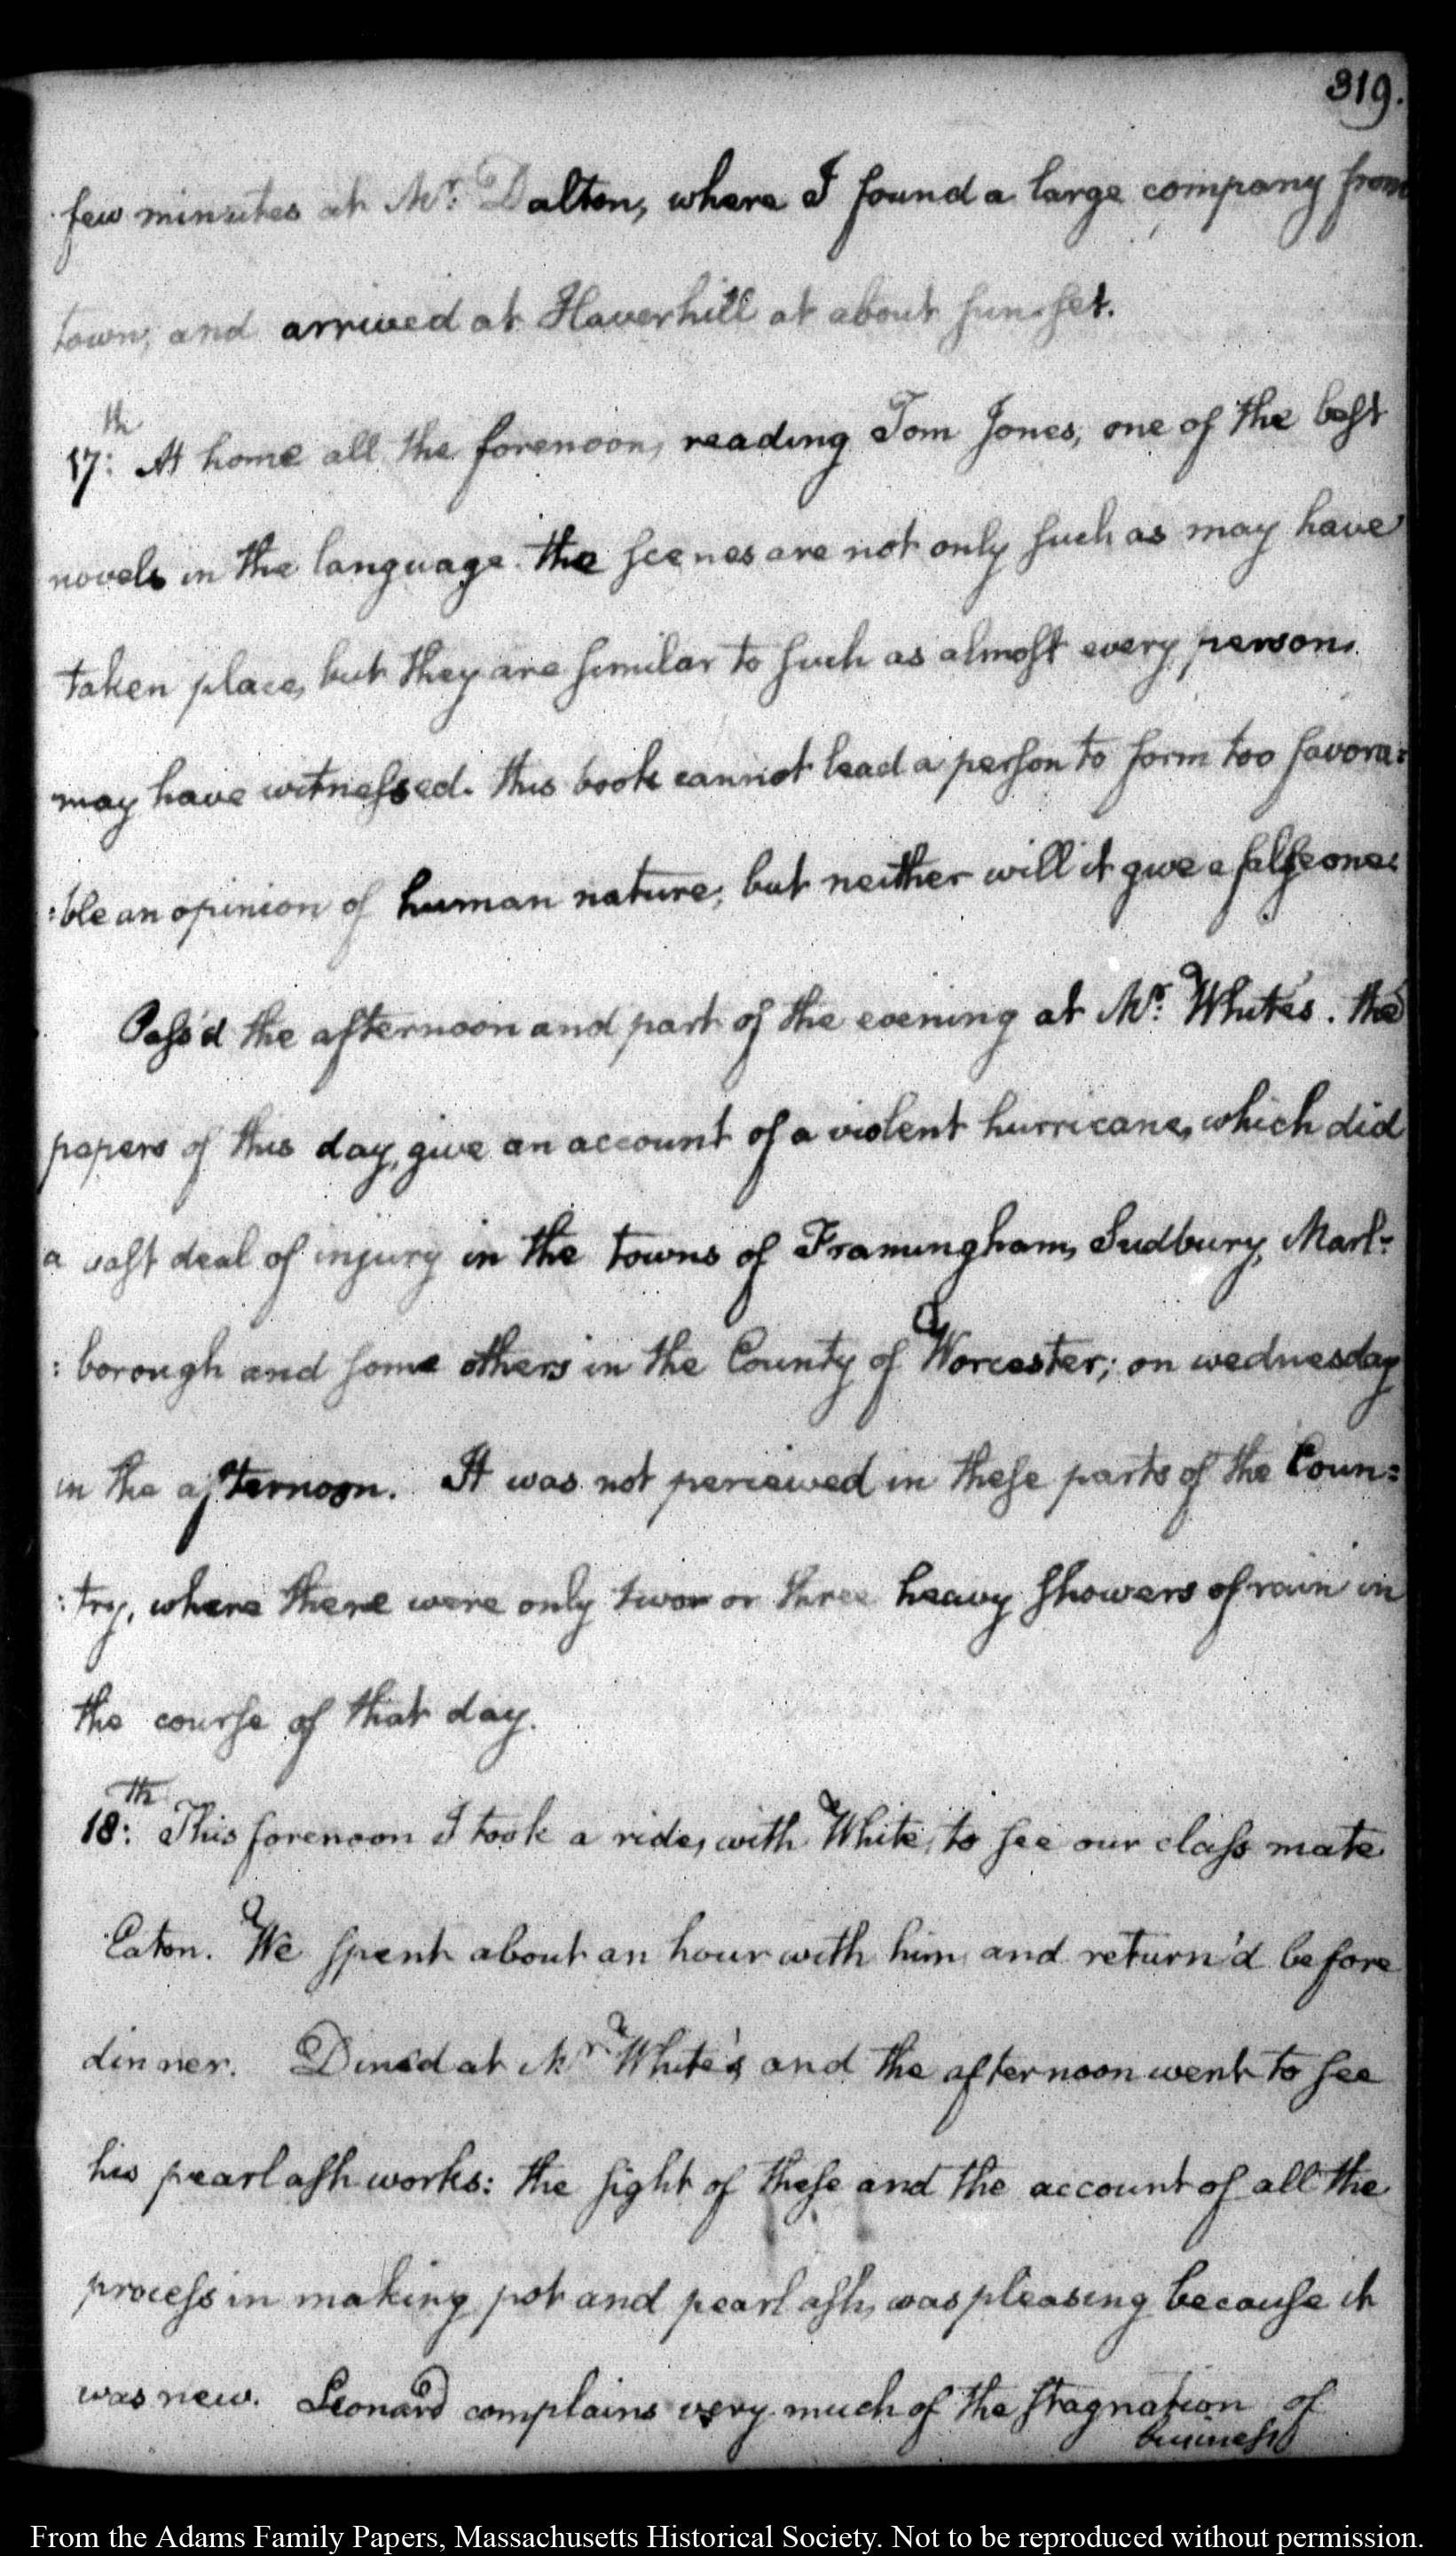 319.
few minutes at Mr: Dalton, where I found a large company from
town, and arrived at Haverhill at about sun-set.
17th: At home all the forenoon, reading Tom Jones, one of the best
novels in the language. the scenes are not only such as may have
taken place, but they are similar to such as almost every person
may have witnessed. this book cannot lead a person to form too favora:
:ble an opinion of human nature, but neither will it give a false one.
Pass'd the afternoon and part of the evening at Mr: White's. the
papers of this day, give an account of a violent hurricane, which did
a vast deal of injury in the towns of Framingham, Sudbury, Marl-
: borough and some others in the County of Worcester; on wednesday
in the afternoon. It was not perceived in these parts of the Coun=
:try, where there were only two or or three heavy showers of rain in
the course of that day.
18th: This forenoon I took a ride, with White, to see our class mate
Eaton. We spent about an hour with him, and return'd before
dinner. Din'd at Mr White's, and the afternoon went to see
his pearl ash works: the sight of these and the account of all the
process in making pot and pearl ash, was pleasing because it
was new. Leonard complains very much of the stagnation of
business
From the Adams Family Papers, Massachusetts Historical Society. Not to be reproduced without permission.